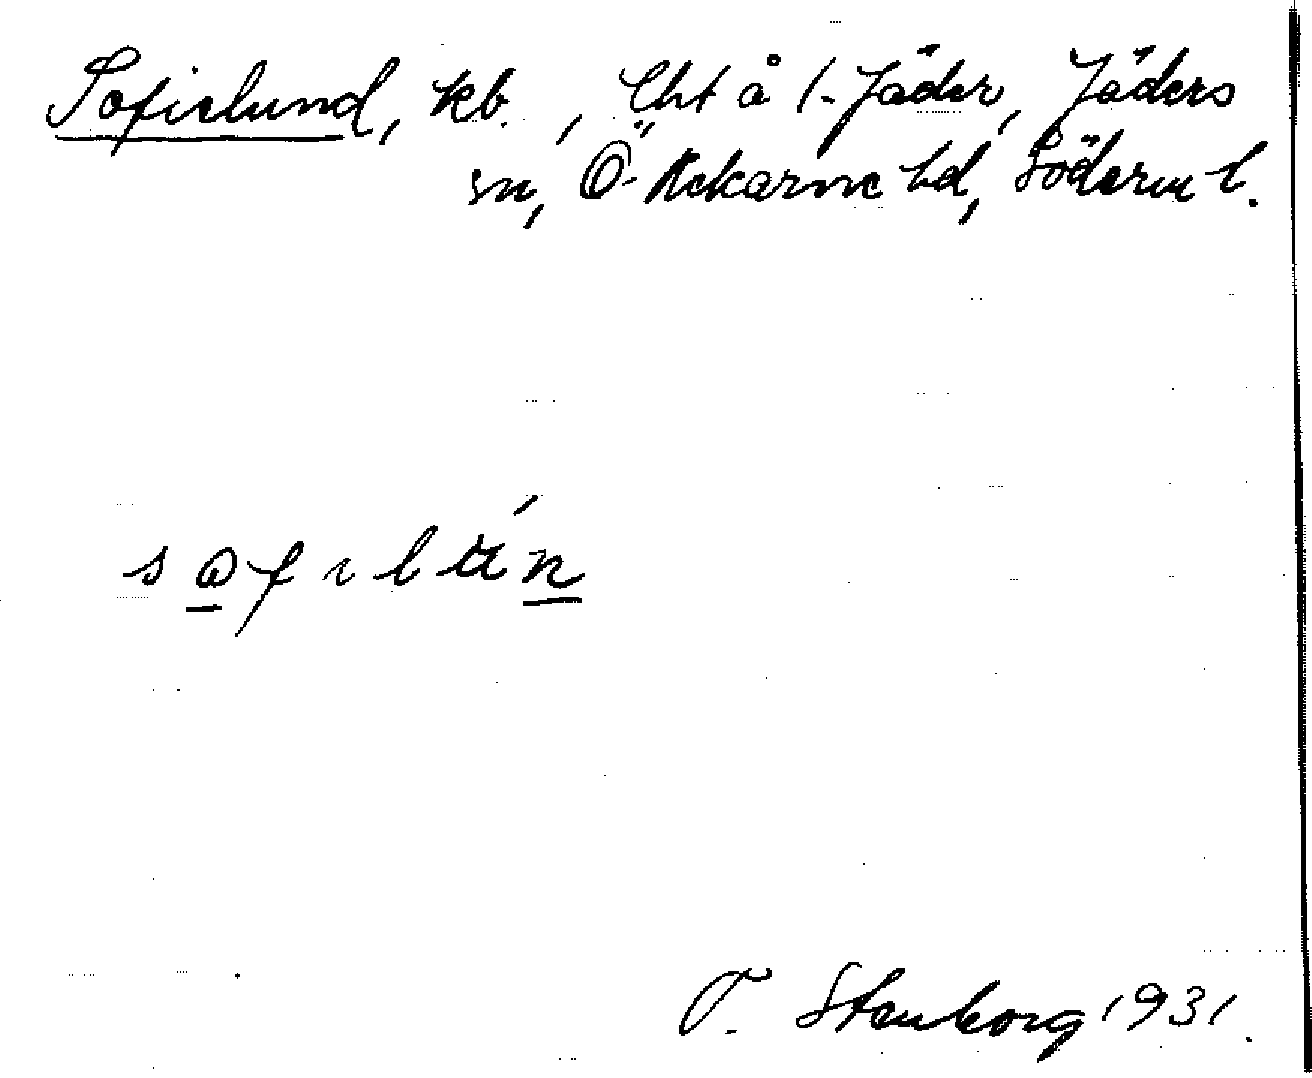 Sofielund, kb., Lht å 1. Jäder, Jäders
sn, Ö. Rekarne hd, Söderm l.
sofilun
T. Stenborg 1931.